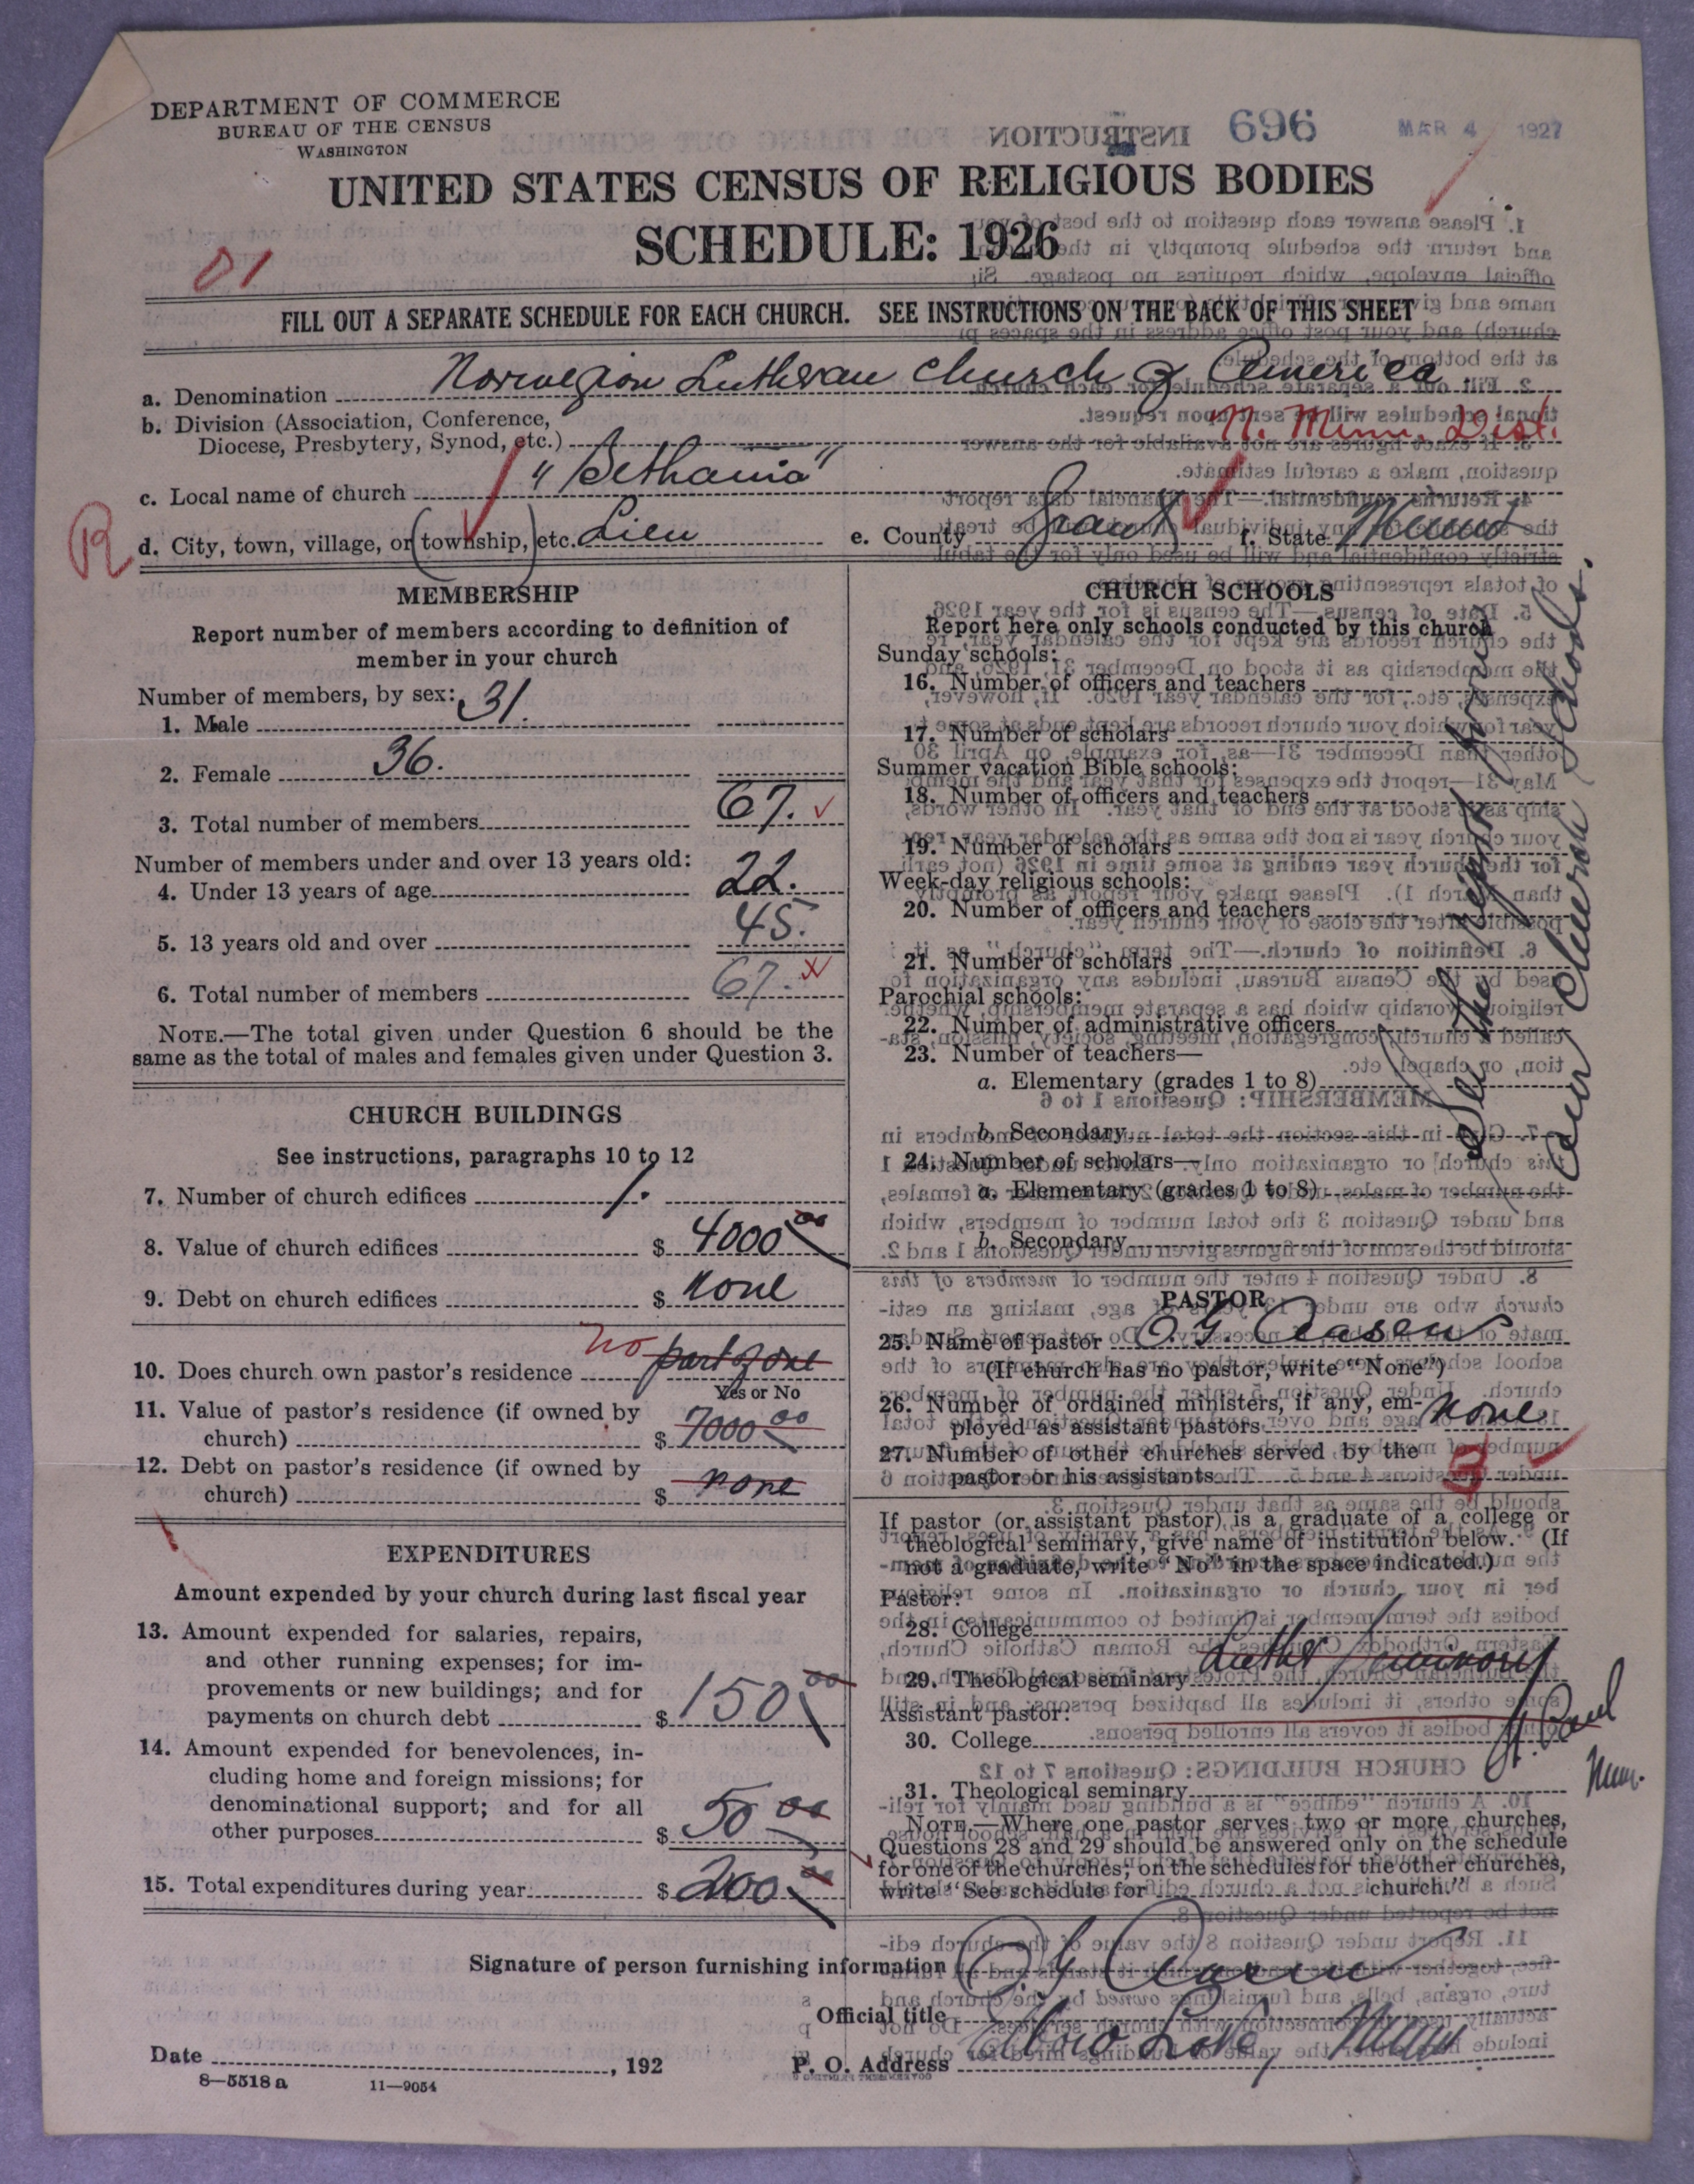 DEPARTMENT OF COMMERCE
BUREAU OF THE CENSUS
WASHINGTON
696
MAR 4 1927
UNITED STATES CENSUS OF RELIGIOUS BODIES
SCHEDULE: 1926
01
FILL OUT A SEPARATE SCHEDULE FOR EACH CHURCH. SEE INSTRUCTIONS ON THE BACK OF THIS SHEET
a. Denomination Norwegian Lutheran Church of America
b. Division (Association, Conference,
Diocese, Presbytery, Synod, etc.) N. Minn. Dist.
c. Local name of church "Bethania"
R
d. City, town, village, or (township,) etc. Lien e. County Grant f. State Minn
MEMBERSHIP
Report number of members according to definition of
member in your church
Number of members, by sex:
1. Male 31.
2. Female 36.
3. Total number of members 67.
Number of members under and over 13 years old:
4. Under 13 years of age 22.
5. 13 years old and over 45.
6. Total number of members 67.
NOTE.—The total given under Question 6 should be the
same as the total of males and females given under Question 3.
CHURCH BUILDINGS
See instructions, paragraphs 10 to 12
7. Number of church edifices 1.
8. Value of church edifices $ 4000 00
9. Debt on church edifices $ none
10. Does church own pastor's residence No part of one
Yes or No
11. Value of pastor's residence (if owned by
church) $ 7000 00
12. Debt on pastor's residence (if owned by
church) $ none
EXPENDITURES
Amount expended by your church during last fiscal year
13. Amount expended for salaries, repairs,
and other running expenses; for im-
provements or new buildings; and for
payments on church debt $ 150 00
14. Amount expended for benevolences, in-
cluding home and foreign missions; for
denominational support; and for all
other purposes $ 50 00
15. Total expenditures during year $ 200 00
CHURCH SCHOOLS
Report here only schools conducted by this church
Sunday schools:
16. Number of officers and teachers
17. Number of scholars
Summer vacation Bible schools:
18. Number of officers and teachers
19. Number of scholars
Week-day religious schools:
20. Number of officers and teachers
21. Number of scholars
Parochial schools:
22. Number of administrative officers
23. Number of teachers—
a. Elementary (grades 1 to 8)
b. Secondary
24. Number of scholars—
a. Elementary (grades 1 to 8)
b. Secondary
See the report from
our Church Schools.
PASTOR
25. Name of pastor O. G. Aasen
(If church has no pastor, write "None")
26. Number of ordained ministers, if any, em-
ployed as assistant pastors none
27. Number of other churches served by the
pastor or his assistants 3
If pastor (or assistant pastor) is a graduate of a college or
theological seminary, give name of institution below. (If
not a graduate, write "No" in the space indicated.)
Pastor:
28. College
29. Theological seminary Luther Seminary
St. Paul
Minn.
Assistant pastor:
30. College
31. Theological seminary
NOTE.—Where one pastor serves two or more churches,
Questions 28 and 29 should be answered only on the schedule
for one of the churches; on the schedules for the other churches,
write "See schedule for church."
Signature of person furnishing information O. G. Aasen
Official title
Date , 192 P. O. Address Elbow Lake, Minn
8—5518 a 11—9054